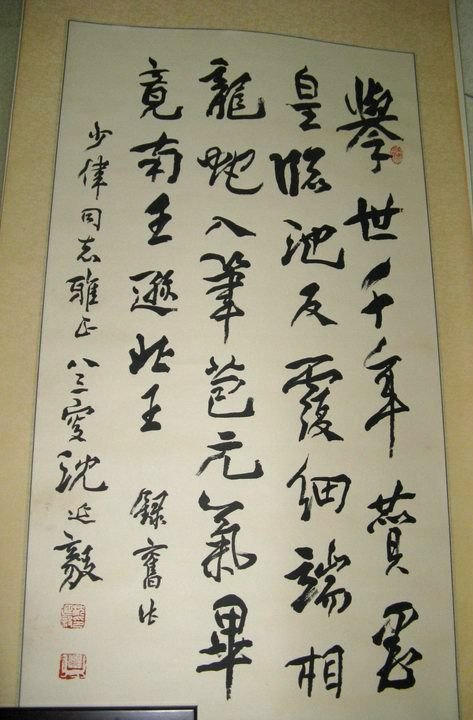 舉世千年贊墨
皇臨池反覆細端相
龍蛇入筆苞元氣畢
竟南王遜北王 錄舊作
少偉同志雅正 八三叟沈延毅